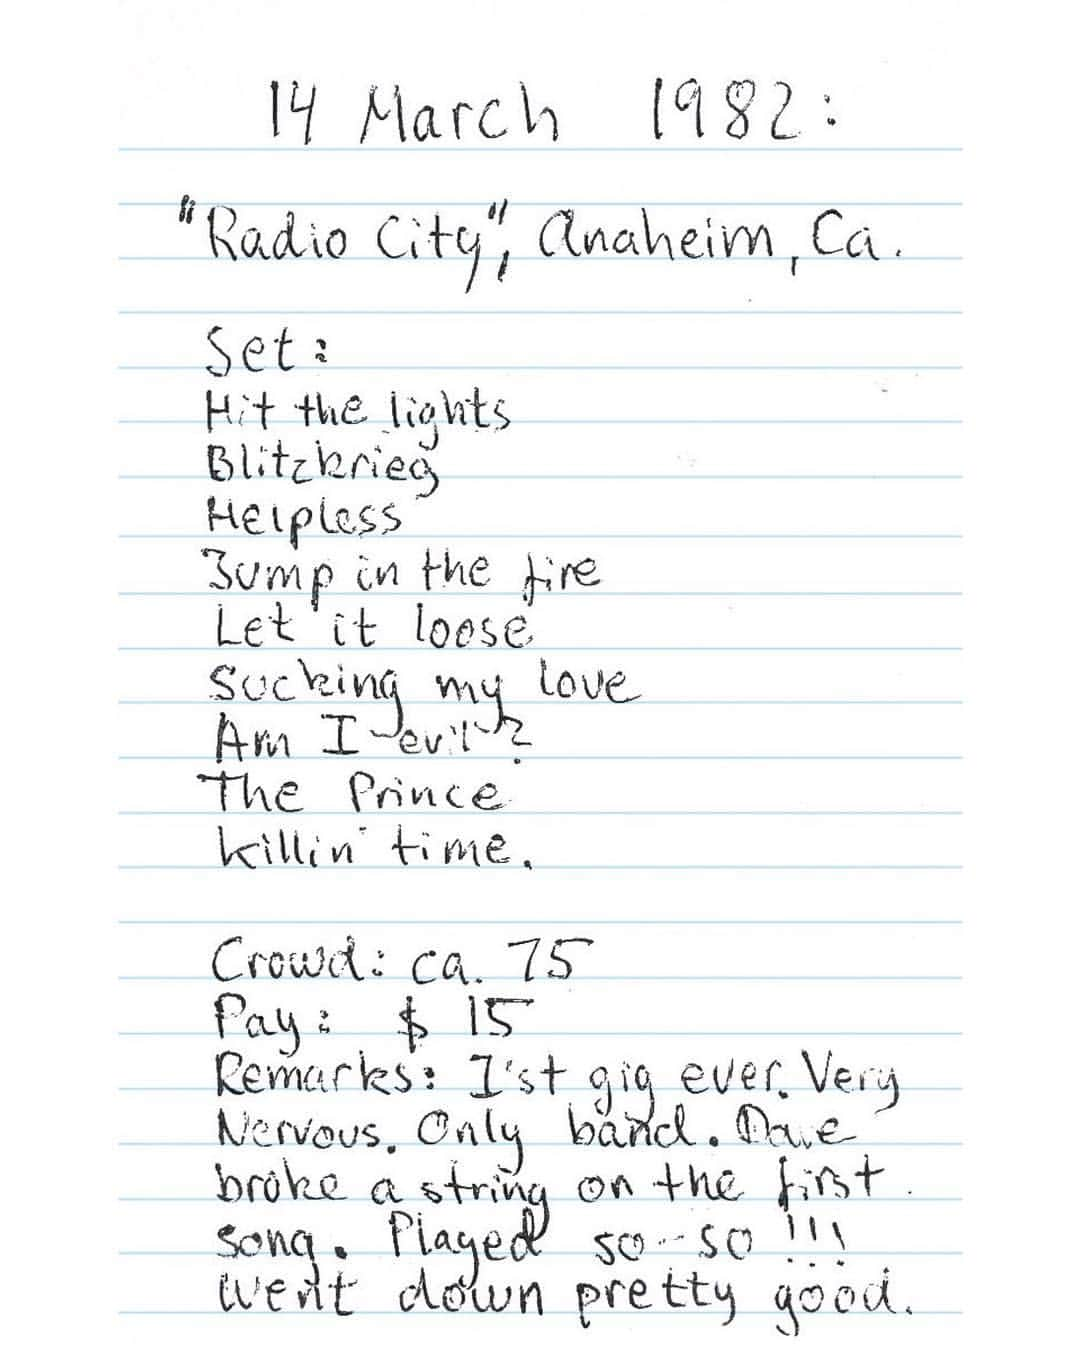 14 March 1982:
"Radio City", Anaheim, Ca.
Set:
Hit the lights
Blitzkrieg
Helpless
Jump in the fire
Let it loose
Sucking my love
Am I evil?
The Prince
killin' time.
Crowd: ca. 75
Pay: $ 15
Remarks: I'st gig ever. Very
Nervous. Only band. Dave
broke a string on the first
song. Played so-so !!!
Went down pretty good.